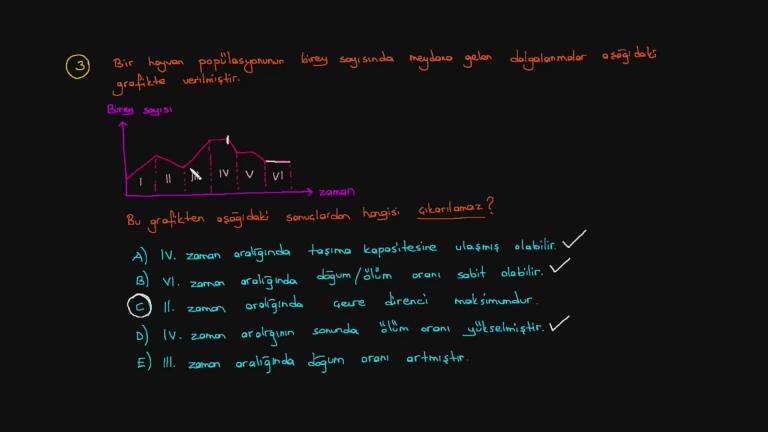 3 Bir hayvan popülasyonunun birey sayısında meydana gelen dalgalanmalar aşağıdaki
grafikte verilmiştir.
Birey sayısı
I II III IV V VI
zaman
Bu grafikten aşağıdaki sonuçlardan hangisi çıkarılamaz?
A) IV. zaman aralığında taşıma kapasitesine ulaşmış olabilir.
B) VI. zaman aralığında doğum/ölüm oranı sabit olabilir.
C) II. zaman aralığında çevre direnci maksimumdur.
D) IV. zaman aralığının sonunda ölüm oranı yükselmiştir.
E) III. zaman aralığında doğum oranı artmıştır.